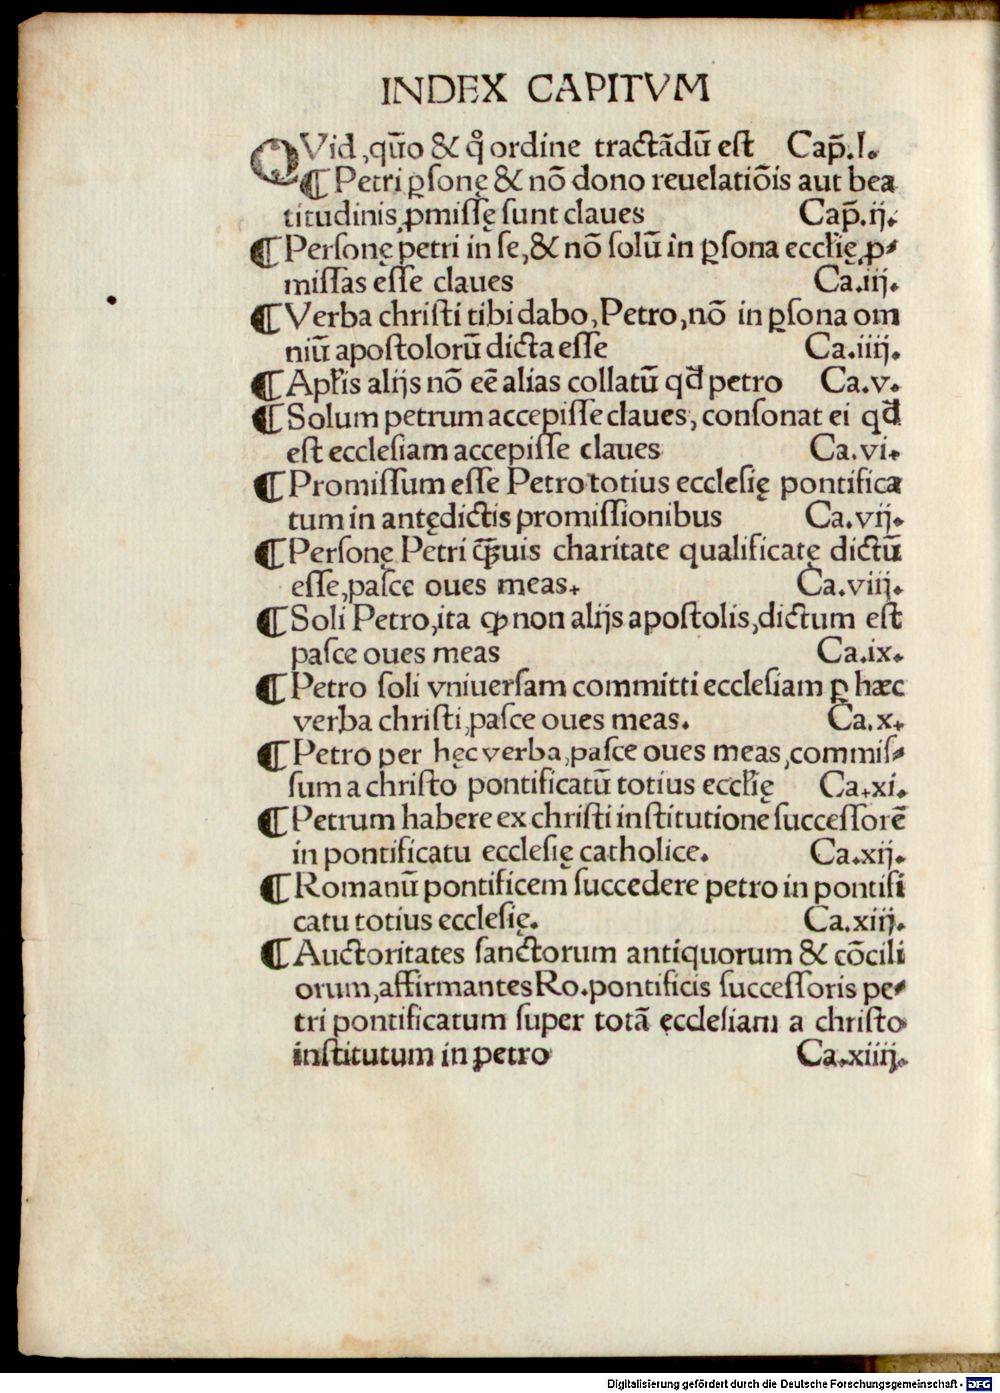 INDEX CAPITVM
QVid, qūo & qͦ ordine tractādū est Cap̄.I.
¶ Petri ꝑsonę & nō dono reuelatiōis aut bea
titudinis, ꝓmissę sunt claues Cap̄.ij.
¶ Personę petri in se, & nō solū in ꝑsona eccłię, ꝓ-
missas esse claues Ca.iij.
¶ Verba christi tibi dabo, Petro, nō in ꝑsona om
niū apostolorū dicta esse Ca.iiij.
¶ Apłis alijs nō eē alias collatū qđ petro Ca.v.
¶ Solum petrum accepisse claues, consonat ei qđ
est ecclesiam accepisse claues Ca.vi.
¶ Promissum esse Petro totius ecclesię pontifica
tum in antędictis promissionibus Ca.vij.
¶ Personę Petri q̄ꝫuis charitate qualificatę dictū
esse, pasce oues meas. Ca.viij.
¶ Soli Petro, ita ꝙ non alijs apostolis, dictum est
pasce oues meas Ca.ix.
¶ Petro soli vniuersam committi ecclesiam ꝑ hæc
verba christi, pasce oues meas. Ca.x.
¶ Petro per hęc verba, pasce oues meas, commis-
sum a christo pontificatū totius eccłię Ca.xi.
¶ Petrum habere ex christi institutione successorē
in pontificatu ecclesię catholice. Ca.xij.
¶ Romanū pontificem succedere petro in pontifi
catu totius ecclesię. Ca.xiij.
¶ Auctoritates sanctorum antiquorum & cōcili
orum, affirmantes Ro. pontificis successoris pe-
tri pontificatum super totā ecclesiam a christo
institutum in petro Ca.xiiij.
Digitalisierung gefördert durch die Deutsche Forschungsgemeinschaft - DFG